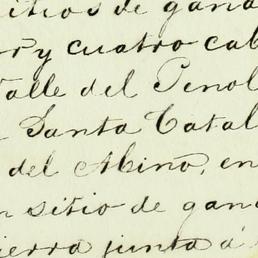 sitios de gana
or y cuatro cab
Valle del Peñol
Santa Catal
del Mino, en
n sitio de gana
ierra junta á